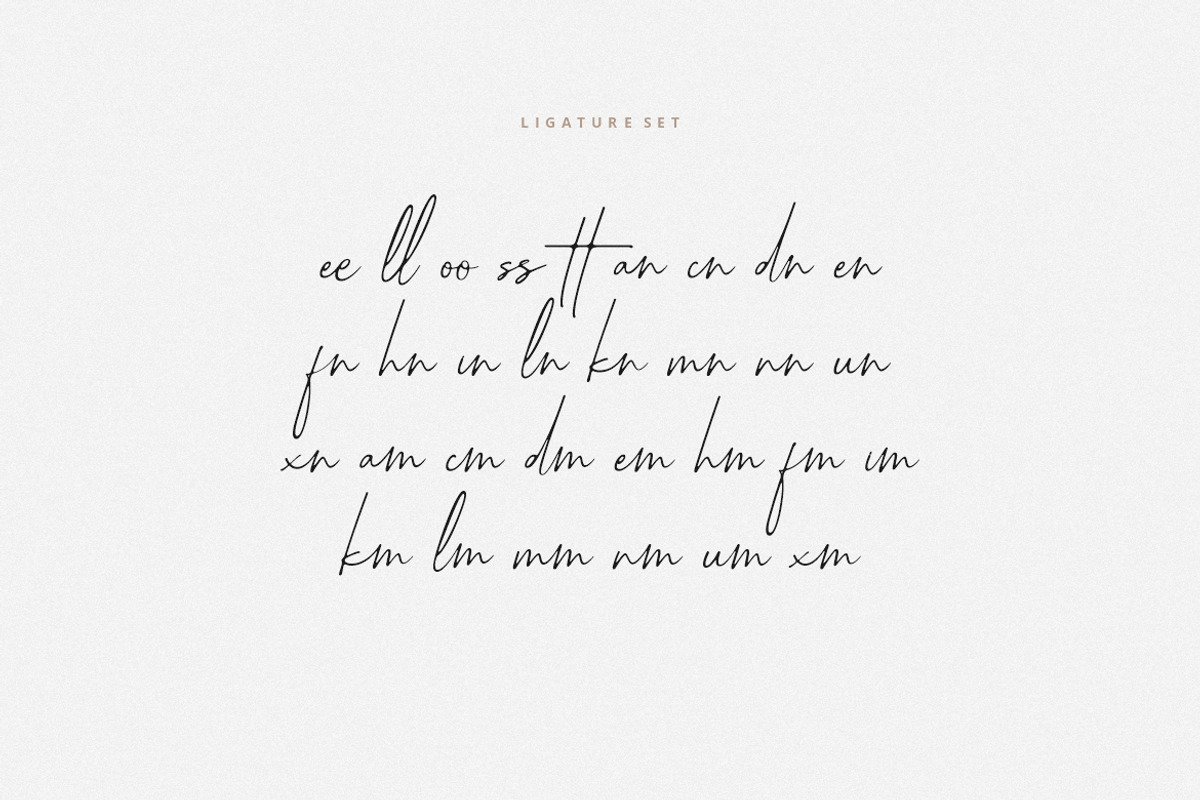 LIGATURE SET
ee ll oo ss tt an cn dn en
fn hn ın ln kn mn nn un
xn am cm dm em hm fm ım
km lm mm nm um xm